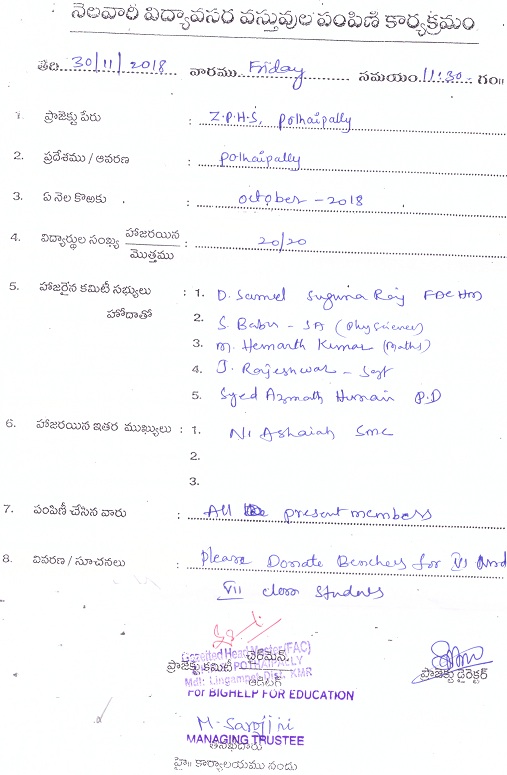 నెలవారి విద్యావసర వస్తువుల పంపిణి కార్యక్రమం
తేది 30/11/2018 వారము Friday సమయం 11:30 - గం॥
1. ప్రాజెక్టు పేరు : Z.P.H.S, Pothaipally
2. ప్రదేశము / ఆవరణ : pothaipally
3. ఏ నెల కొఱకు : october - 2018
4. విద్యార్థుల సంఖ్య హాజరయిన / మొత్తము : 20/20
5. హాజరైన కమిటీ సభ్యులు : 1. D. Samuel Suguna Raj FAC HM
హోదాతో 2. S. Babu - SA (Phy Science)
3. M. Hemanth Kumar (Maths)
4. J. Rajeshwar - Sgt
5. Syed Azmath Husain P.D
6. హాజరయిన ఇతర ముఖ్యులు : 1. N. Ashaiah SMC
2.
3.
7. పంపిణీ చేసిన వారు : All present members
8. వివరణ / సూచనలు : Please Donate Benches for VI and
VII class students
Gazetted Head Master (FAC)
ఛైర్మెన్
ప్రాజెక్టు కమిటీ POTHAIPALLY ప్రాజెక్టు డైరెక్టర్
Mdl: Lingampet, Dist. KMR
ఆడిటర్
For BIGHELP FOR EDUCATION
M. Sarojini
MANAGING TRUSTEE
హై॥ కార్యాలయము నందు